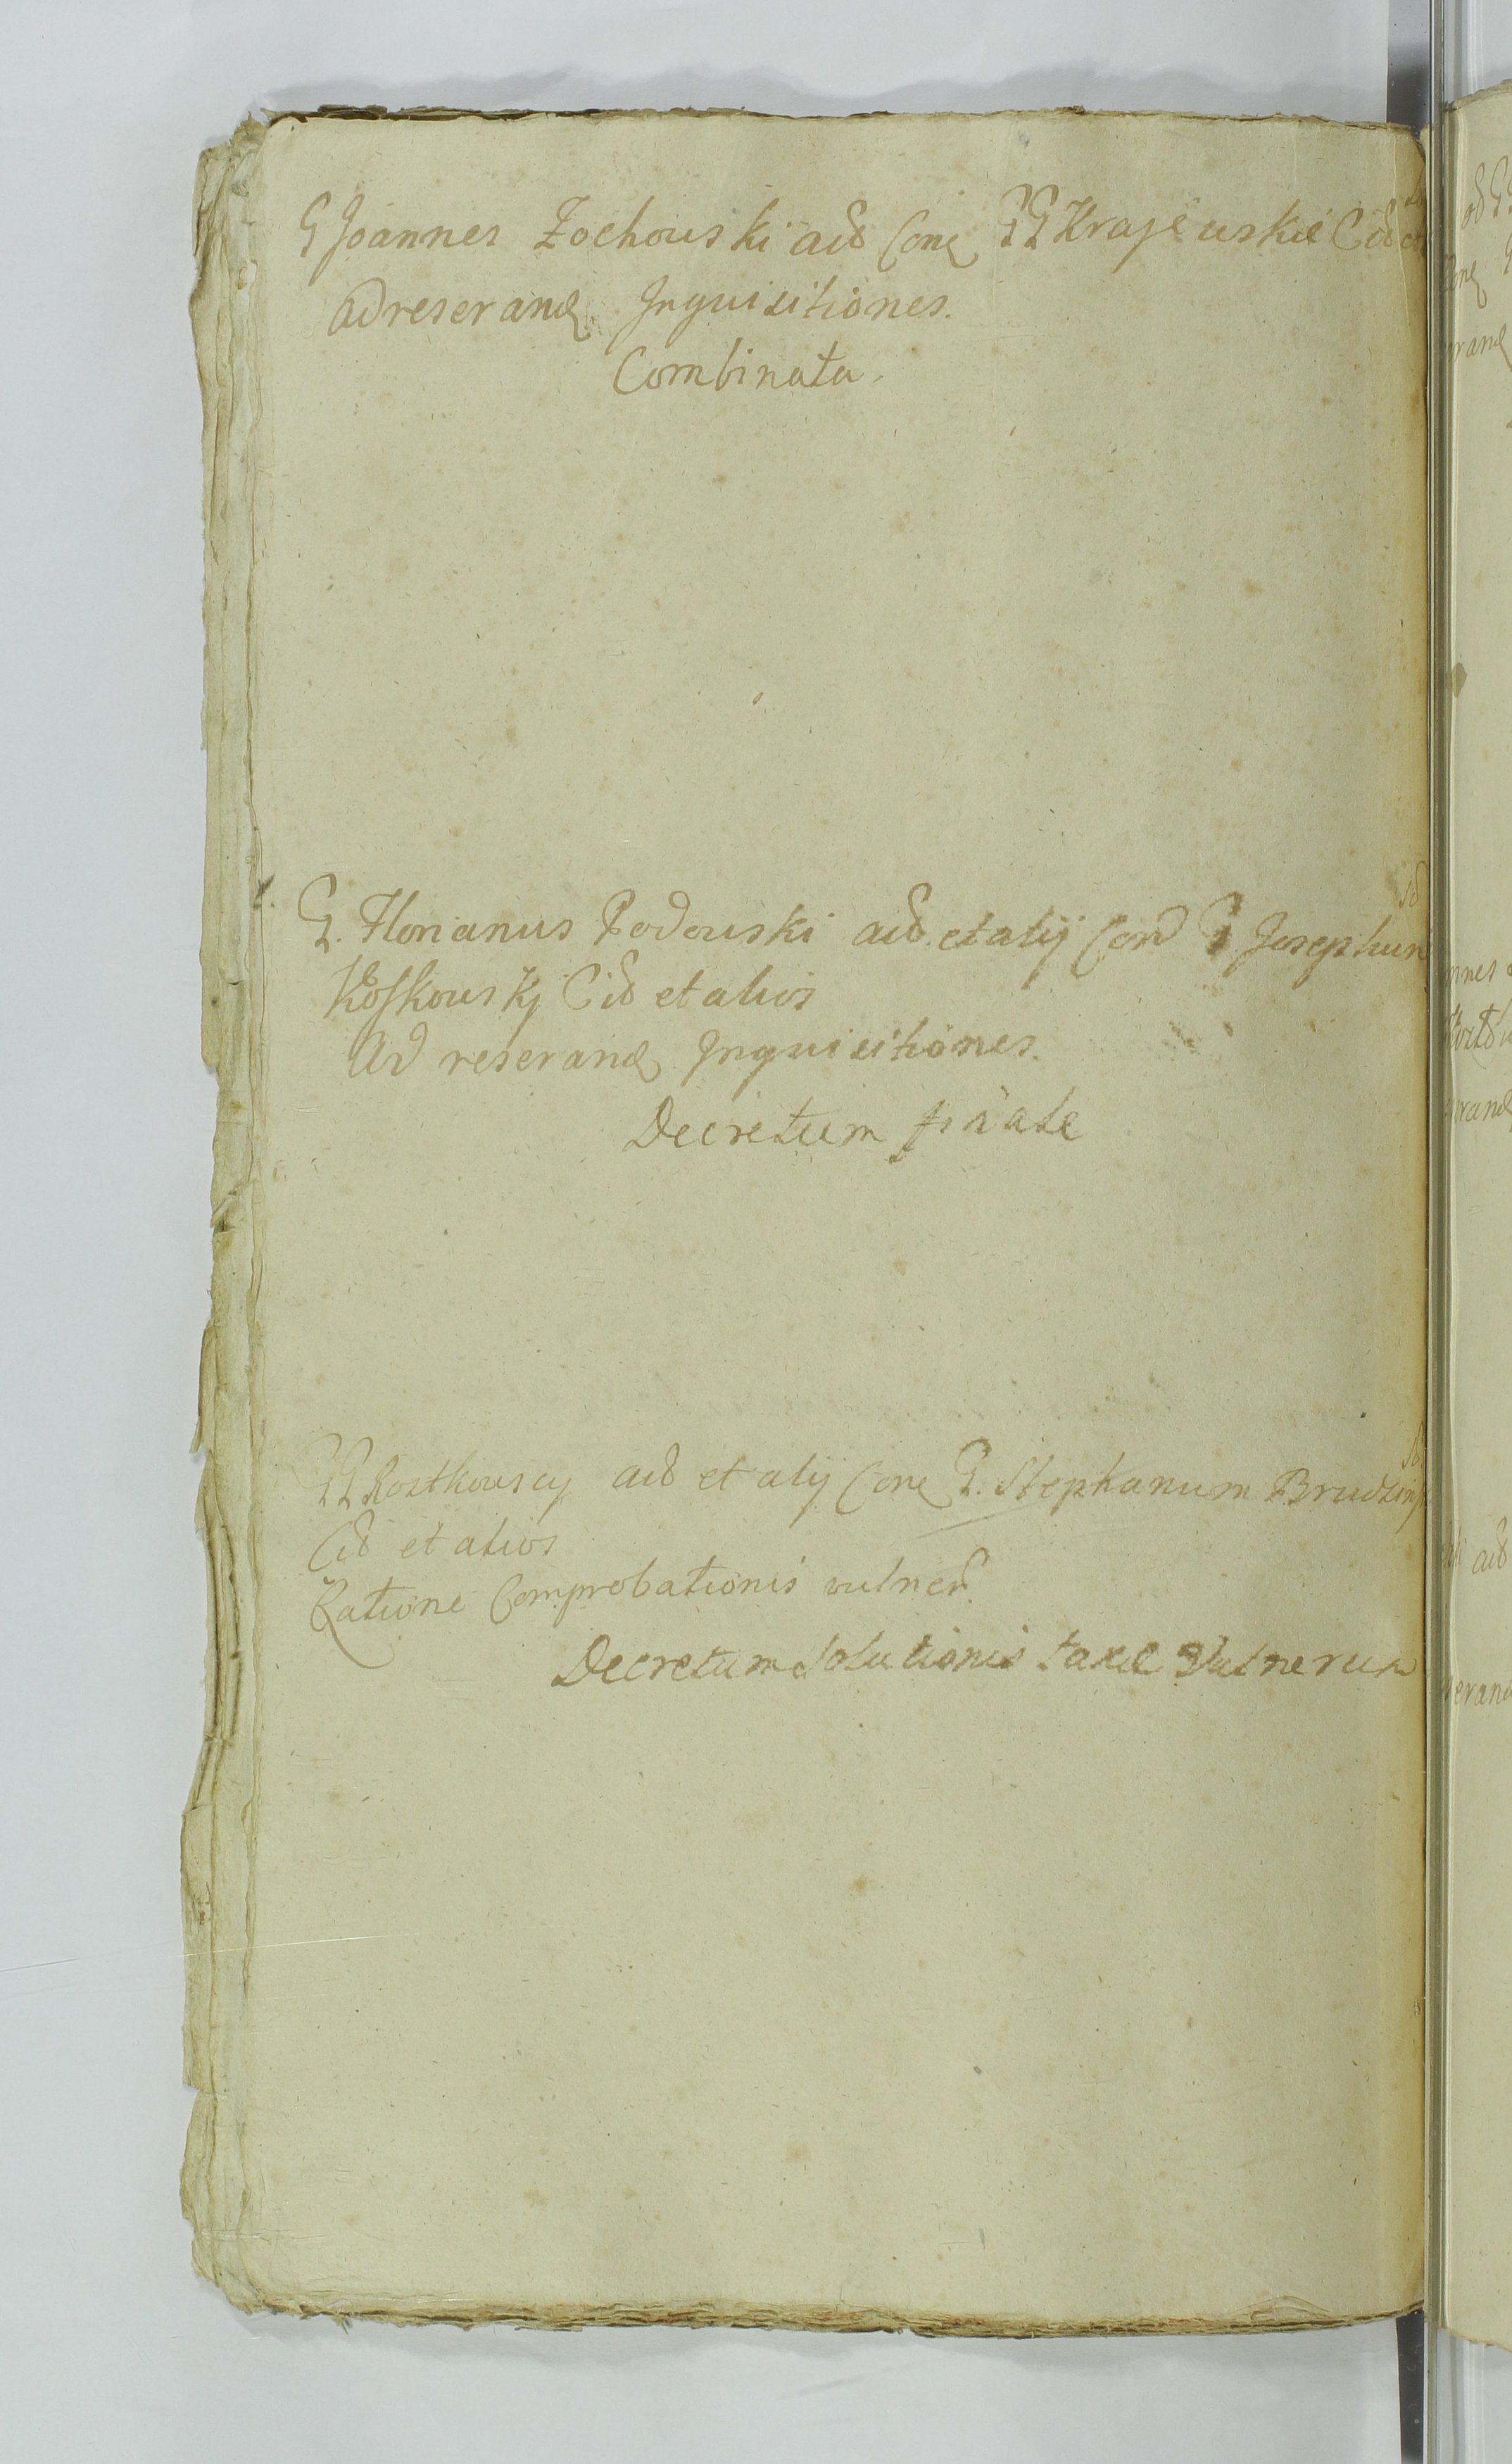 G Joannes Zochouski acð Conq GG Krajeuskie Cið et
Ad reseranð Inquisitiones.
Combinata.
G. Florianus Podouski acð. et alij Conð G Josephum
Koskouskj Cið et alios
Ad reseranð Inquisitiones.
Decretum finale
GG Rostkouscy acð et alij Conq G. Stephanum Brudzin
Cið et alios
Ratione Comprobationis vulner
Decretum Solutionis taxæ Vulnerum